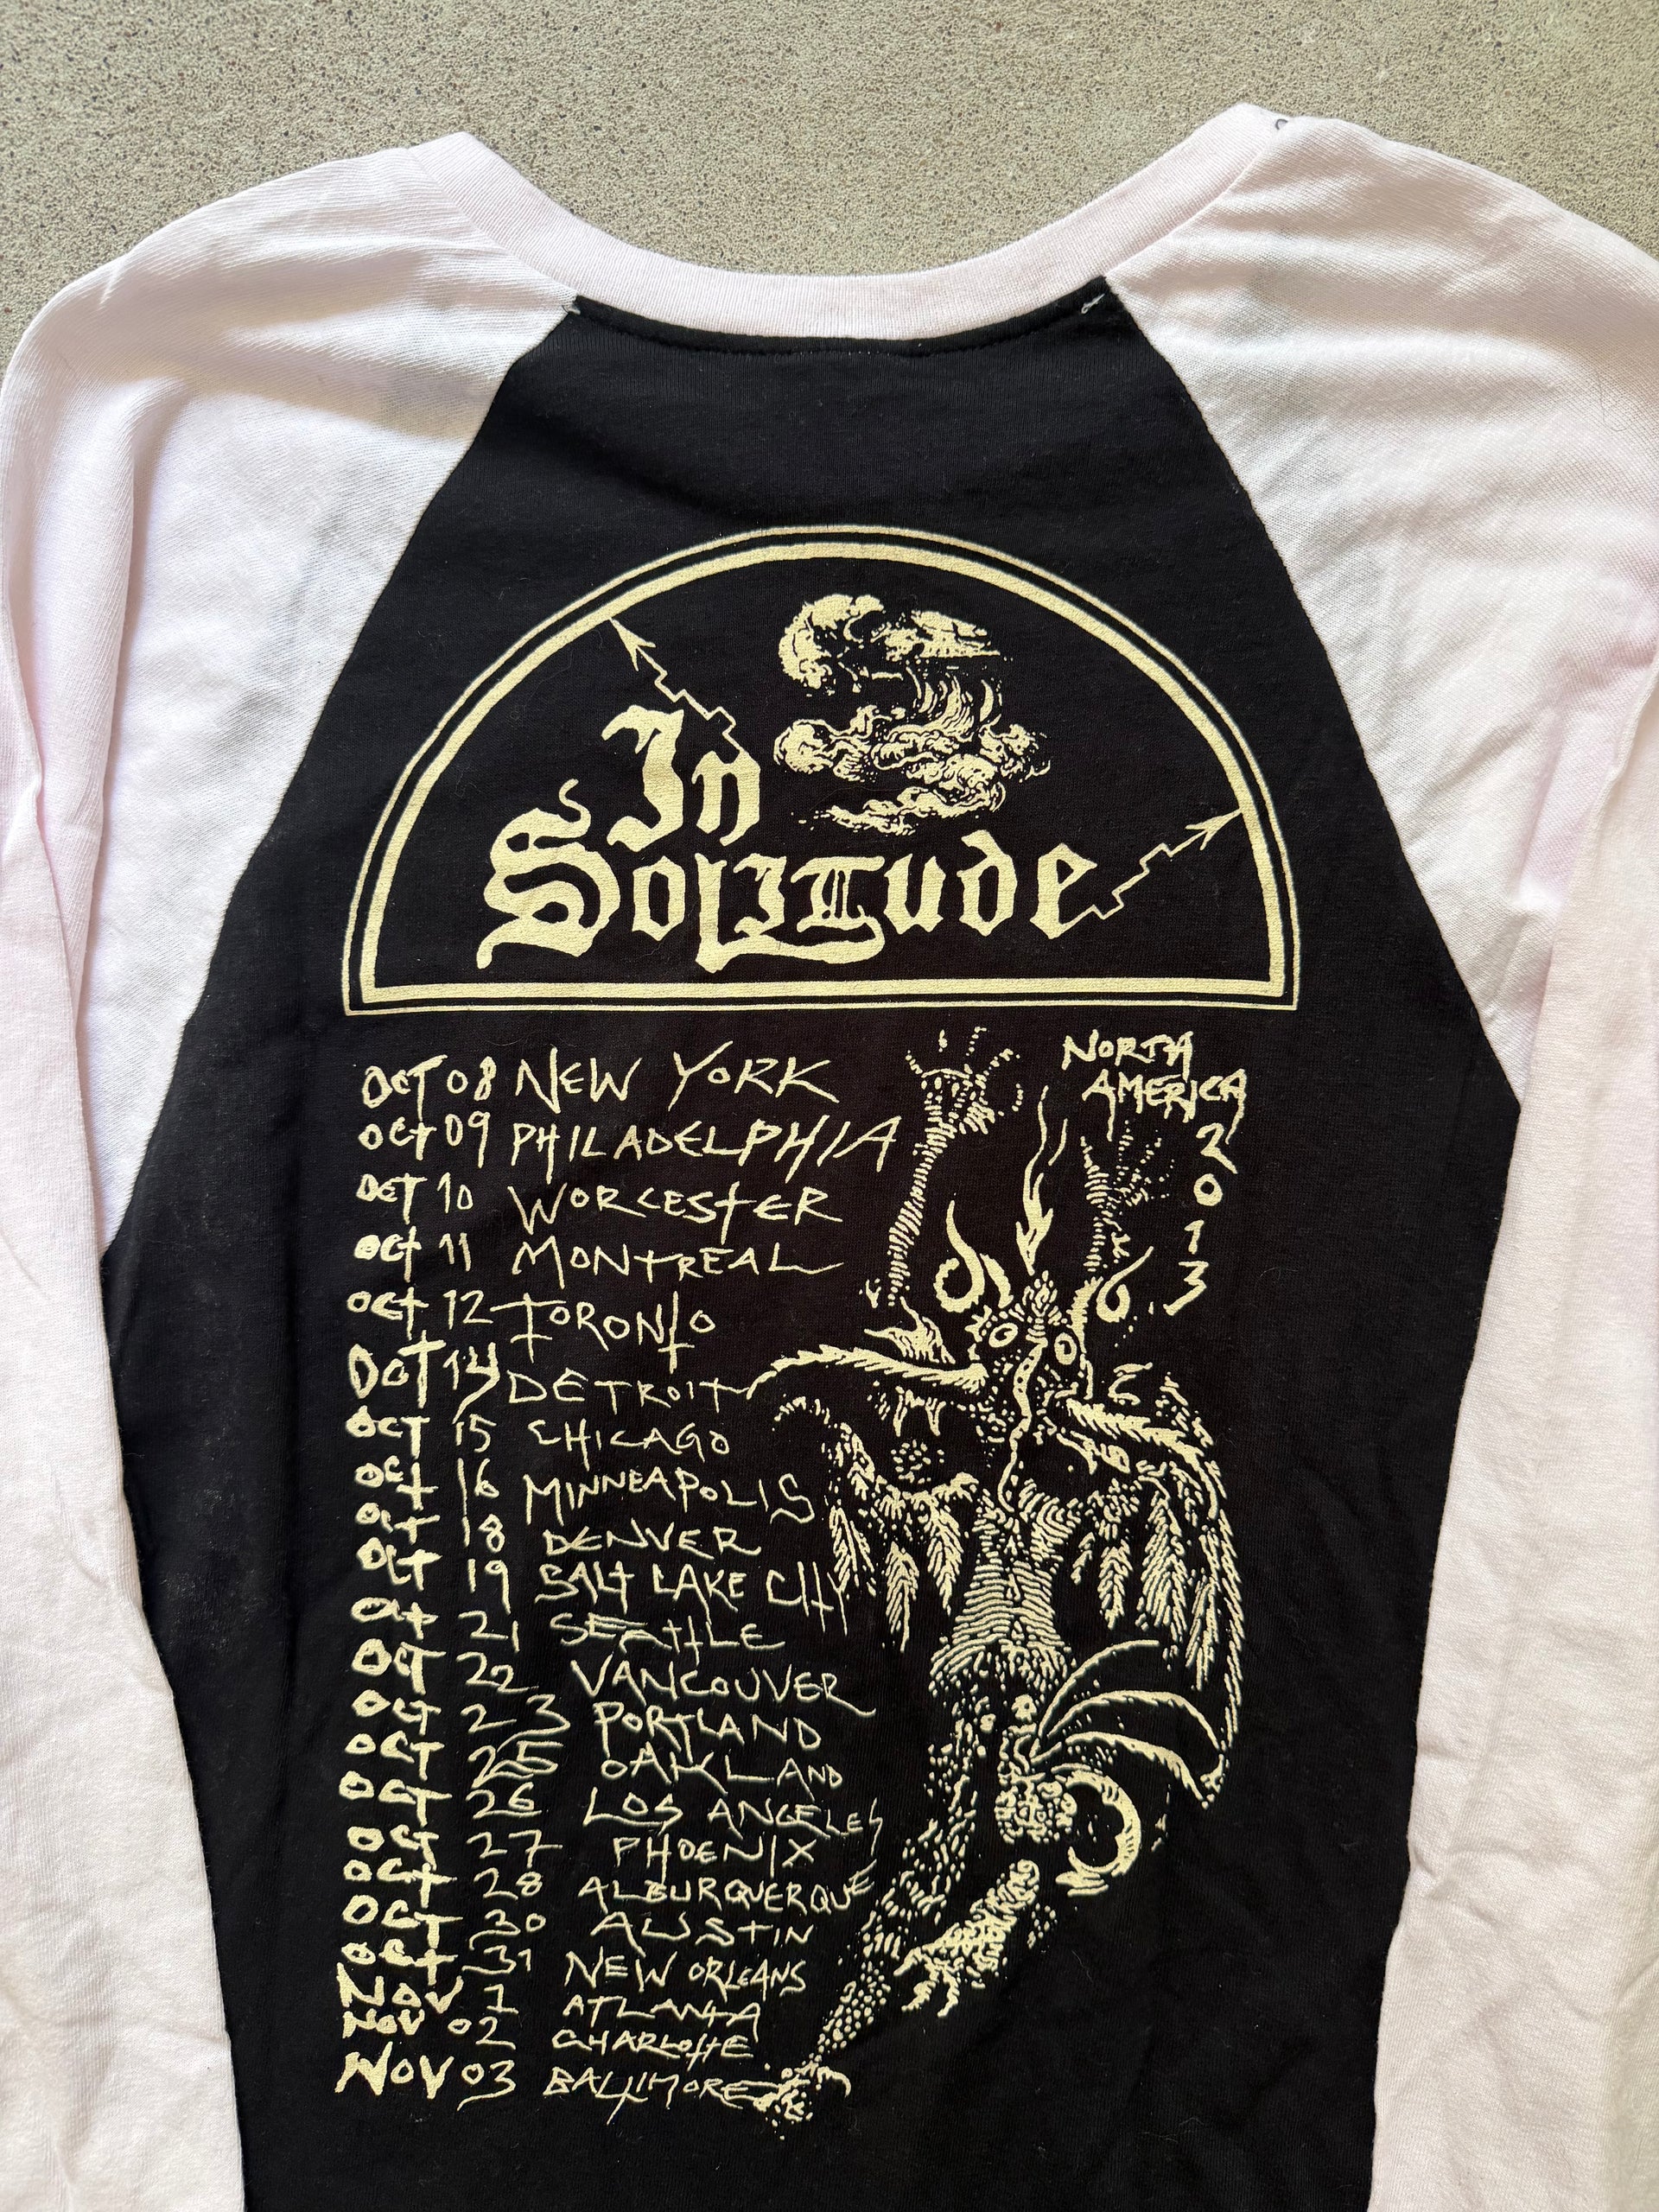 In
Solitude
NORTH
AMERICA
2013
OCT 08 NEW YORK
OCT 09 PHILADELPHIA
OCT 10 WORCESTER
OCT 11 MONTREAL
OCT 12 TORONTO
OCT 14 DETROIT
OCT 15 CHICAGO
OCT 16 MINNEAPOLIS
OCT 18 DENVER
OCT 19 SALT LAKE CITY
OCT 21 SEATTLE
OCT 22 VANCOUVER
OCT 23 PORTLAND
OCT 25 OAKLAND
OCT 26 LOS ANGELES
OCT 27 PHOENIX
OCT 28 ALBURQUERQUE
OCT 30 AUSTIN
OCT 31 NEW ORLEANS
NOV 1 ATLANTA
NOV 02 CHARLOTTE
NOV 03 BALTIMORE